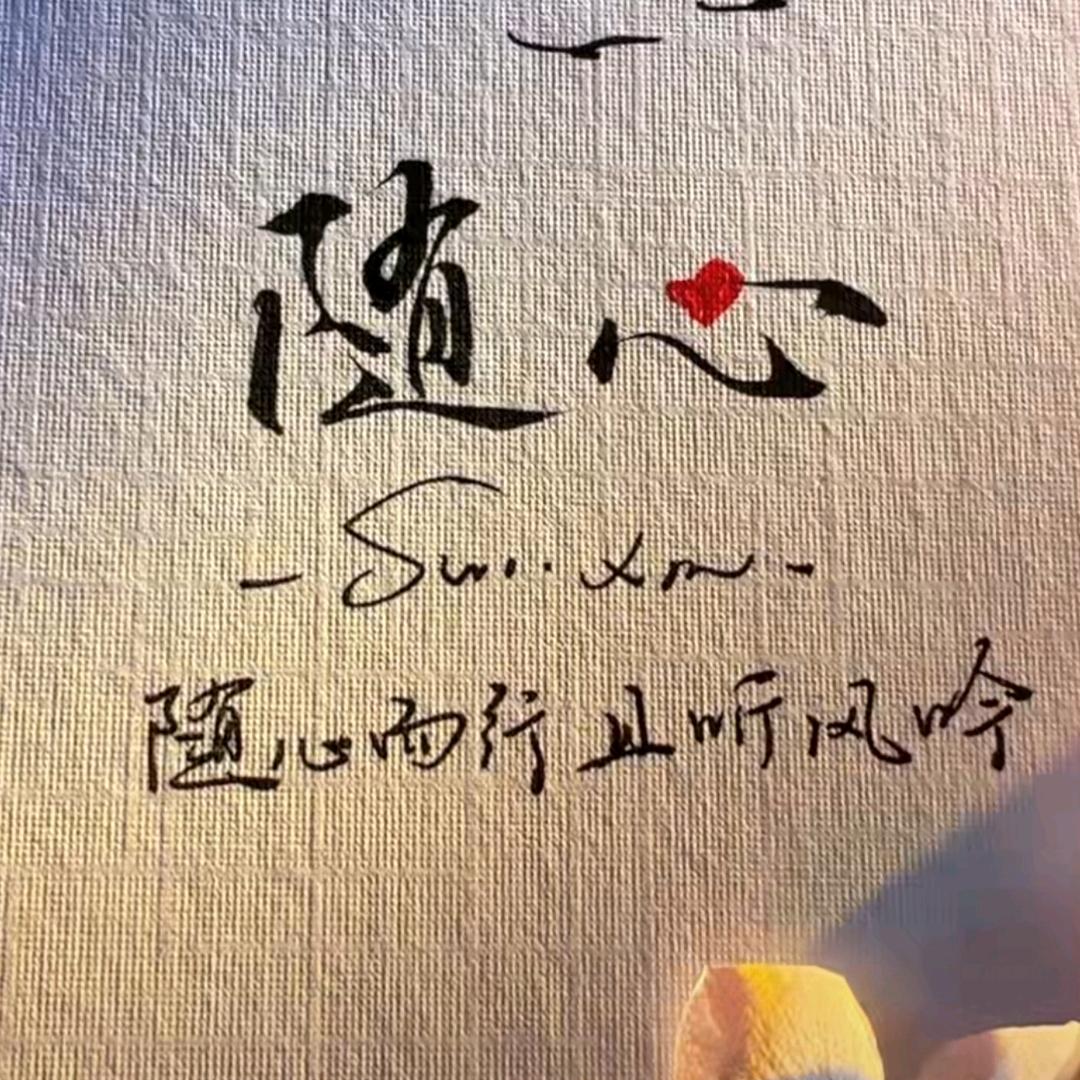 随心
- Sui. xin -
随心而行 且听风吟